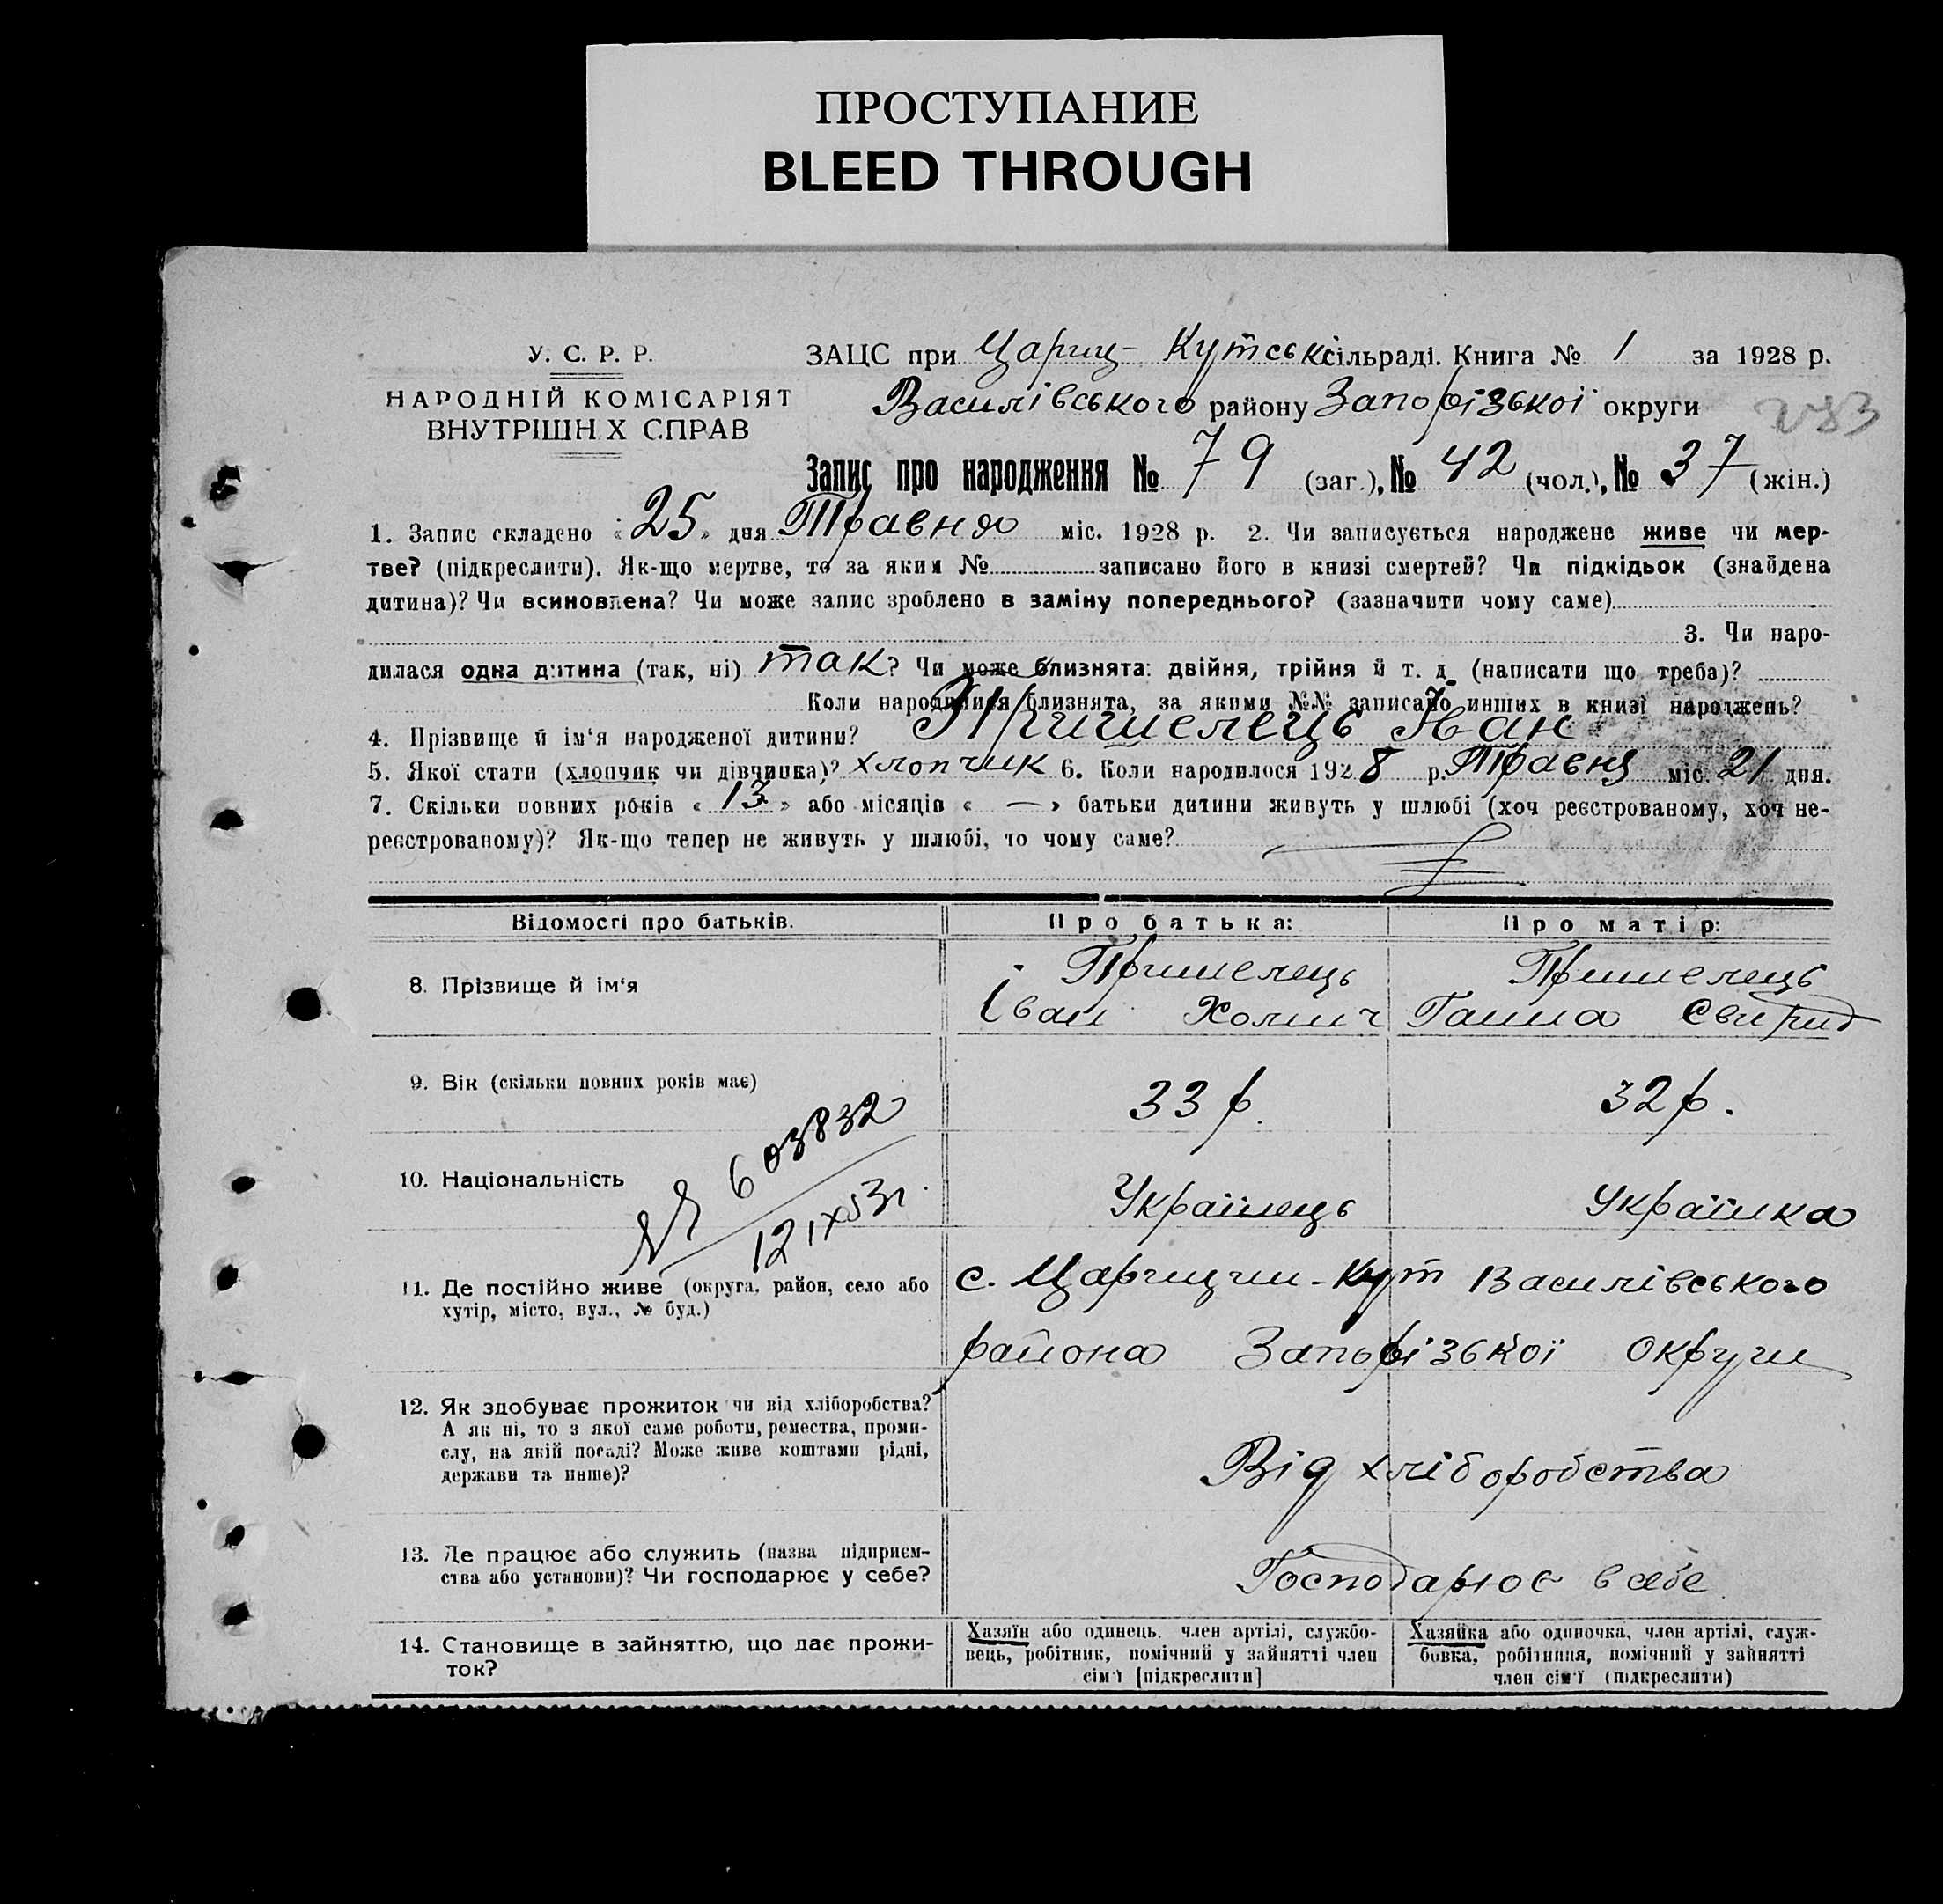 ПРОСТУПАНИЕ
BLEED THROUGH
У. С. Р. Р.
НАРОДНІЙ КОМІСАРІЯТ
ВНУТРІШН Х СПРАВ
ЗАЦС при Цариц-Кутські сільраді. Книга № 1 за 1928 р.
Василівського району Запорізької округи
Запис про народження № 79 (заг.), № 42 (чол.), № 37 (жін.)
1. Запис складено «25» дня Травня міс. 1928 р. 2. Чи записується народжене живе чи мер-
тве? (підкреслити). Як-що мертве, то за яким № записано його в книзі смертей? Чи підкідьок (знайдена
дитина)? Чи всиновлена? Чи може запис зроблено в заміну попереднього? (зазначити чому саме)
3. Чи наро-
дилася одна дитина (так, ні) так? Чи може близнята: двійня, трійня й т. д. (написати що треба)?
Коли народилися близнята, за якими №№ записано инших в книзі народжень?
4. Прізвище й ім‘я народженої дитини? Пришелець Іван
5. Якої стати (хлопчик чи дівчинка)? хлопчик 6. Коли народилося 1928 р. Травня міс. 21 дня.
7. Скільки повних років «13» або місяців « — » батьки дитини живуть у шлюбі (хоч реєстрованому, хоч не-
реєстрованому)? Як-що тепер не живуть у шлюбі, то чому саме?
Відомості про батьків. Про батька: Про матір:
8. Прізвище й ім‘я
Пришелець Пришелець
Іван Хомич Ганна Свирид
9. Вік (скільки повних років має) 33 р. 32 р.
10. Національність Українець Українка
603832
12 IX 53г.
11. Де постійно живе (округа, район, село або
хутір, місто, вул., № буд.)
с. Царицин-Кут Василівського
района Запорізької округи
12. Як здобуває прожиток чи від хліборобства?
А як ні, то з якої саме роботи, ремества, проми-
слу, на якій посаді? Може живе коштами рідні,
держави та инше)?
Від хліборобства
13. Де працює або служить (назва підприєм-
ства або установи)? Чи господарює у себе?
Господарює в себе
14. Становище в зайняттю, що дає прожи-
ток?
Хазяїн або одинець. член артілі, службо-
вець, робітник, помічний у зайнятті член
сім‘ї [підкреслити]
Хазяйка або одиночка, член артілі, служ-
бовка, робітниця, помічний у зайнятті
член сім‘ї (підкреслити)